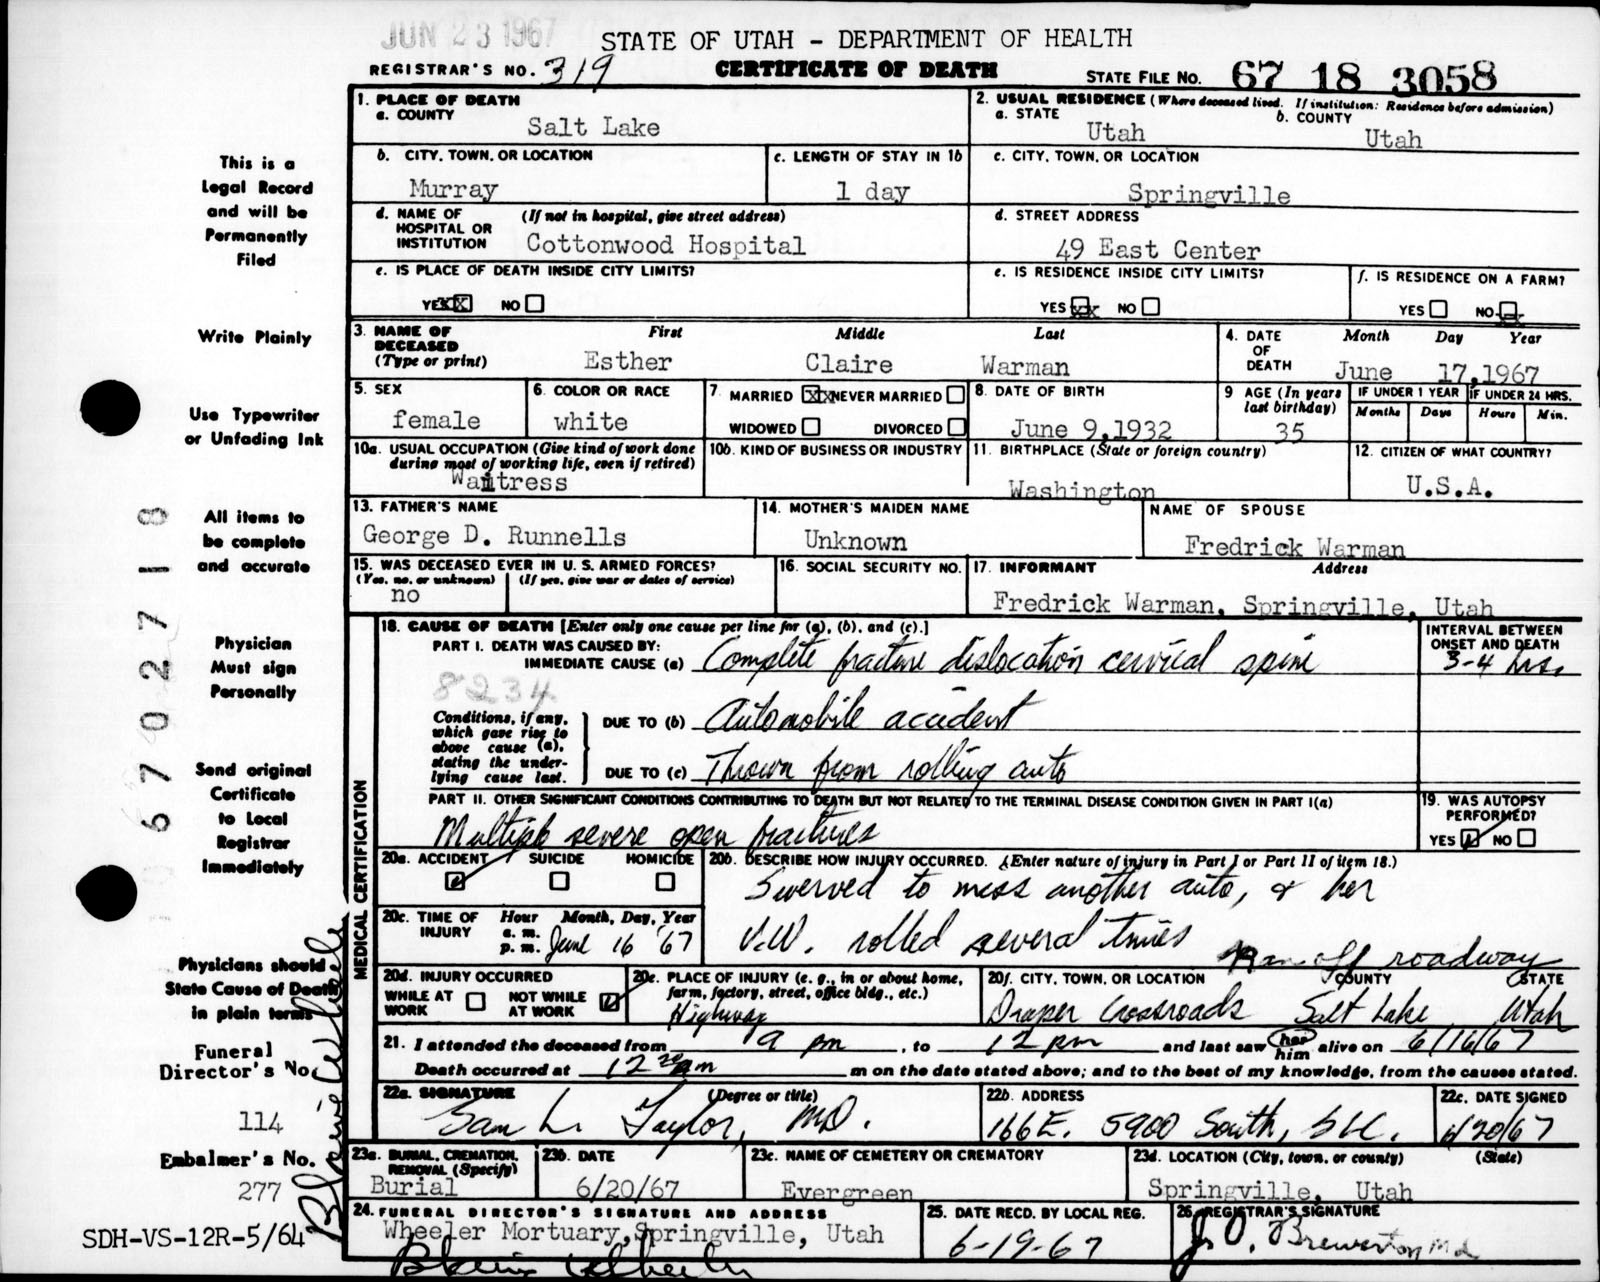 JUN 23 1967
STATE OF UTAH - DEPARTMENT OF HEALTH
REGISTRAR'S NO. 319
CERTIFICATE OF DEATH
STATE FILE NO. 67 18 3058
This is a
Legal Record
and will be
Permanently
Filed
Write Plainly
Use Typewriter
or Unfading Ink
All items to
be complete
and accurate
Physician
Must sign
Personally
Send original
Certificate
to Local
Registrar
Immediately
Physicians should
State Cause of Death
in plain terms
Funeral
Director's No.
114
Embalmer's No.
277
SDH-VS-12R-5/64
67027 18
1. PLACE OF DEATH
a. COUNTY
Salt Lake
2. USUAL RESIDENCE (Where deceased lived. If institution: Residence before admission)
a. STATE b. COUNTY
Utah Utah
b. CITY, TOWN, OR LOCATION
Murray
c. LENGTH OF STAY IN 1b
1 day
c. CITY, TOWN, OR LOCATION
Springville
d. NAME OF HOSPITAL OR INSTITUTION (If not in hospital, give street address)
Cottonwood Hospital
d. STREET ADDRESS
49 East Center
e. IS PLACE OF DEATH INSIDE CITY LIMITS?
YES XX NO
e. IS RESIDENCE INSIDE CITY LIMITS?
YES XX NO
f. IS RESIDENCE ON A FARM?
YES NO XX
3. NAME OF DECEASED (Type or print)
First Middle Last
Esther Claire Warman
4. DATE OF DEATH
Month Day Year
June 17,1967
5. SEX
female
6. COLOR OR RACE
white
7 MARRIED XX NEVER MARRIED
WIDOWED DIVORCED
8. DATE OF BIRTH
June 9,1932
9 AGE (In years last birthday)
35
IF UNDER 1 YEAR IF UNDER 24 HRS.
Months Days Hours Min.
10a. USUAL OCCUPATION (Give kind of work done during most of working life, even if retired)
Waitress
10b. KIND OF BUSINESS OR INDUSTRY
11. BIRTHPLACE (State or foreign country)
Washington
12. CITIZEN OF WHAT COUNTRY?
U.S.A.
13. FATHER'S NAME
George D. Runnells
14. MOTHER'S MAIDEN NAME
Unknown
NAME OF SPOUSE
Fredrick Warman
15. WAS DECEASED EVER IN U. S. ARMED FORCES?
(Yes, no, or unknown) (If yes, give war or dates of service)
no
16. SOCIAL SECURITY NO.
17. INFORMANT Address
Fredrick Warman, Springville, Utah
MEDICAL CERTIFICATION
18. CAUSE OF DEATH [Enter only one cause per line for (a), (b), and (c).]
INTERVAL BETWEEN ONSET AND DEATH
PART I. DEATH WAS CAUSED BY:
IMMEDIATE CAUSE (a) Complete fracture dislocation cervical spine
3-4 hrs.
8234
Conditions, if any, which gave rise to above cause (a), stating the underlying cause last.
DUE TO (b) Automobile accident
DUE TO (c) Thrown from rolling auto
PART II. OTHER SIGNIFICANT CONDITIONS CONTRIBUTING TO DEATH BUT NOT RELATED TO THE TERMINAL DISEASE CONDITION GIVEN IN PART I(a)
Multiple severe open fractures
19. WAS AUTOPSY PERFORMED?
YES NO
20a. ACCIDENT SUICIDE HOMICIDE
20b. DESCRIBE HOW INJURY OCCURRED. (Enter nature of injury in Part I or Part II of item 18.)
Swerved to miss another auto, & her
V.W. rolled several times
Ran off roadway
20c. TIME OF INJURY
Hour Month, Day, Year
a. m.
p. m. June 16 '67
20d. INJURY OCCURRED
WHILE AT WORK NOT WHILE AT WORK
20e. PLACE OF INJURY (e. g., in or about home, farm, factory, street, office bldg., etc.)
Highway
20f. CITY, TOWN, OR LOCATION COUNTY STATE
Draper Crossroads Salt Lake Utah
21. I attended the deceased from 9 pm, to 12 pm and last saw her him alive on 6/16/67
Death occurred at 12 m on the date stated above; and to the best of my knowledge, from the causes stated.
22a. SIGNATURE (Degree or title)
Sam L. Taylor, MD.
22b. ADDRESS
166 E. 5900 South, SLC.
22c. DATE SIGNED
6/20/67
23a. BURIAL, CREMATION, REMOVAL (Specify)
Burial
23b. DATE
6/20/67
23c. NAME OF CEMETERY OR CREMATORY
Evergreen
23d. LOCATION (City, town, or county) (State)
Springville, Utah
24. FUNERAL DIRECTOR'S SIGNATURE AND ADDRESS
Wheeler Mortuary,Springville, Utah
25. DATE RECD. BY LOCAL REG.
6-19-67
26. REGISTRAR'S SIGNATURE
J. O. Brewerton Md